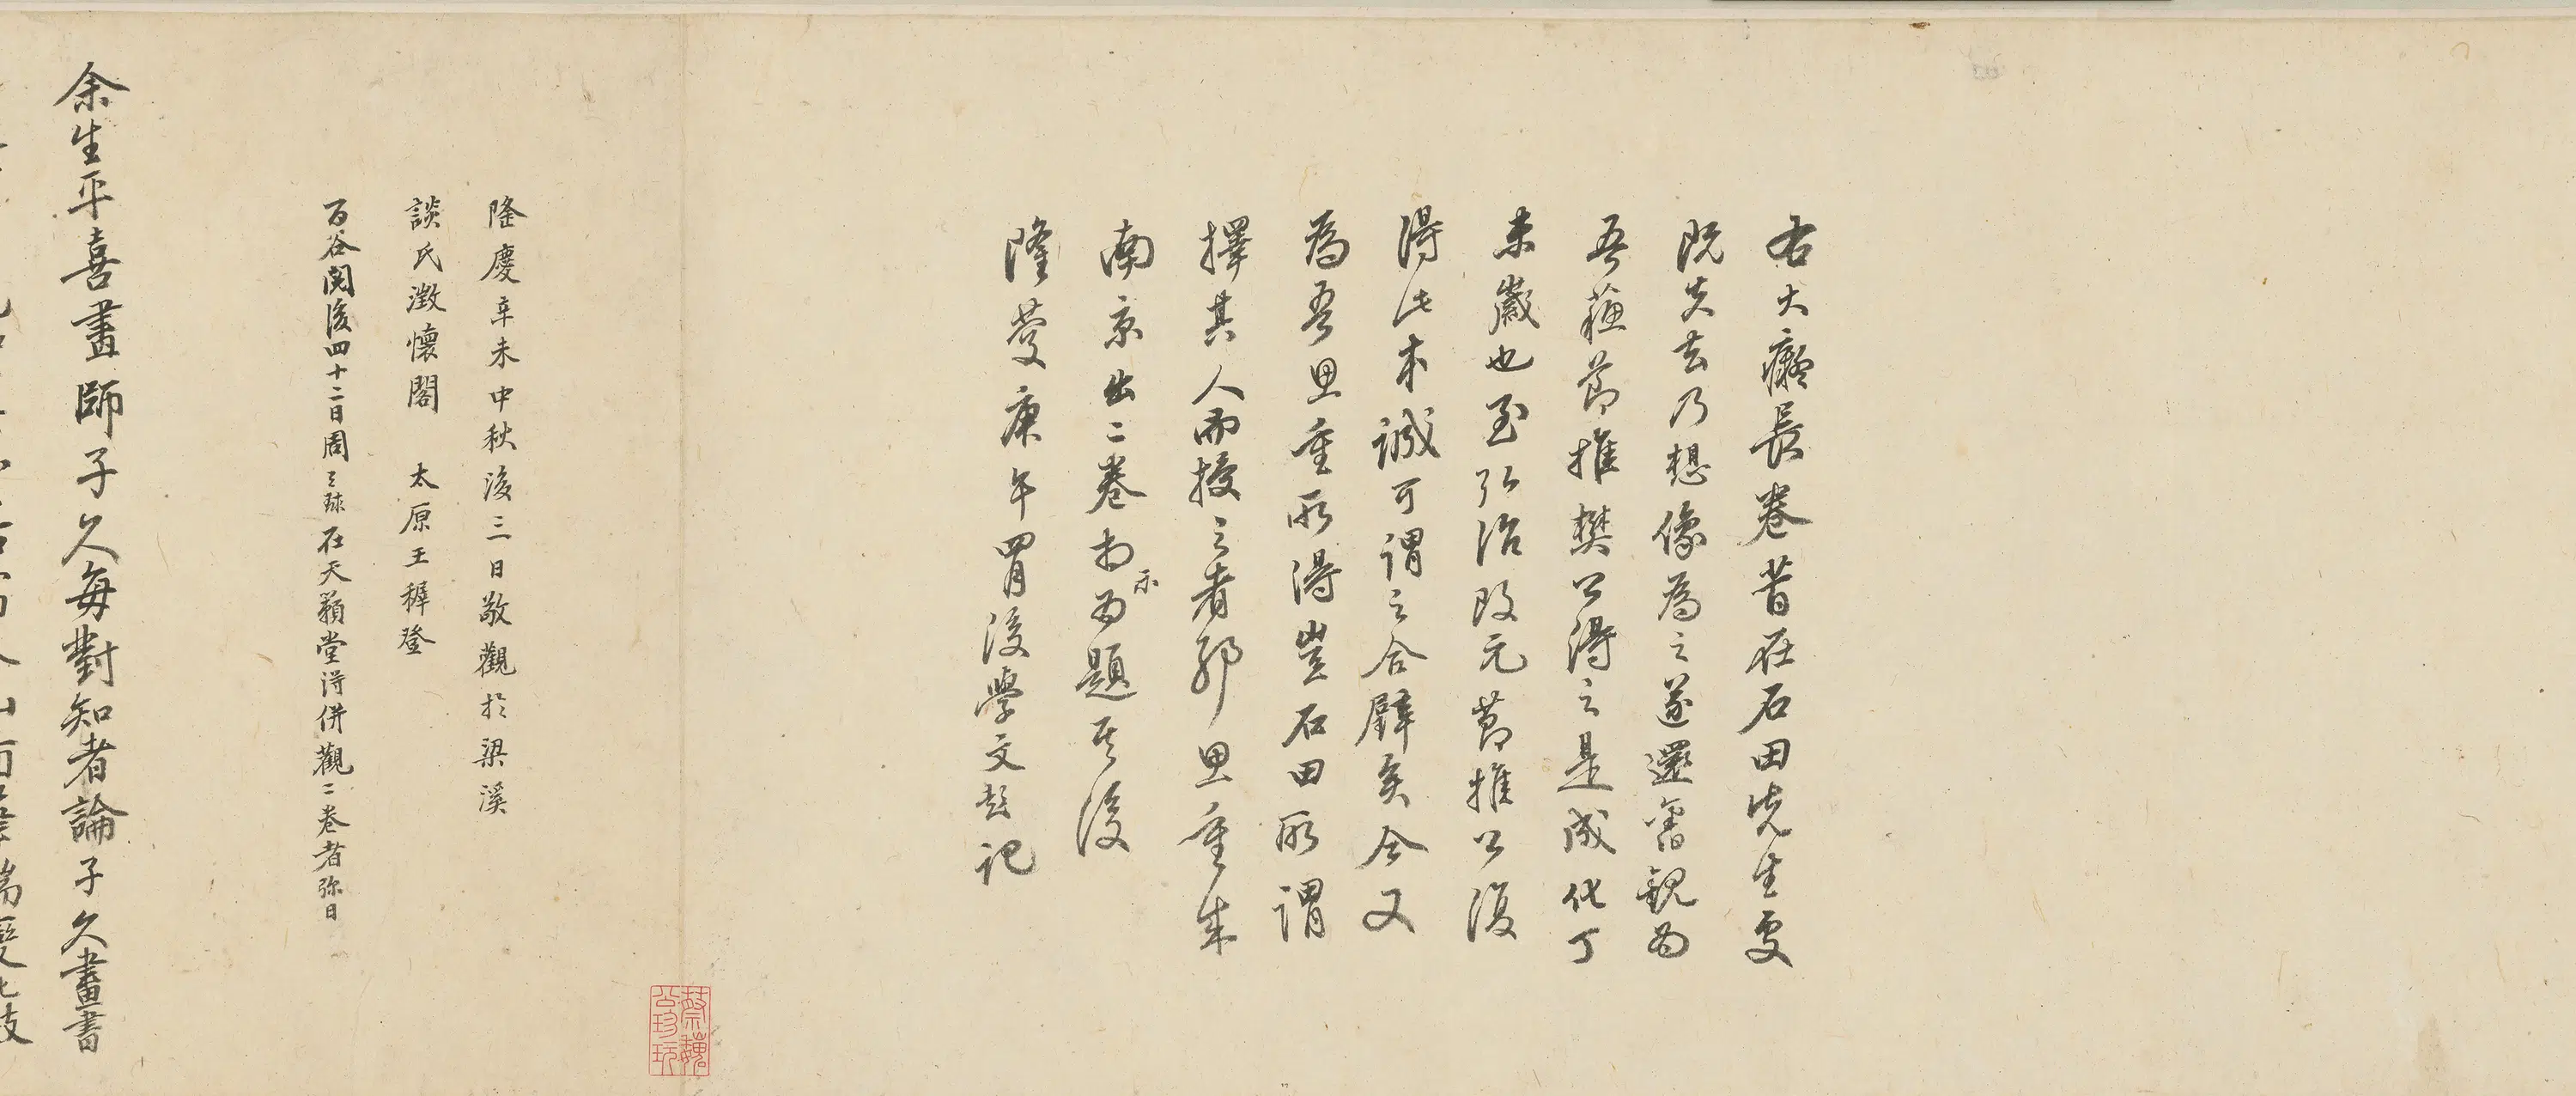 右大癡長卷昔在石田先生處
既失去乃想像為之遂還舊觀為
吾蘓節推樊公得之是成化丁
未歲也至弘治改元節推公復
得此本誠可謂之合璧矣今又
為吾思重所得豈石田所謂
擇其人而授之者耶思重來
南京出二卷相示為題其後
隆慶庚午冒後學文彭記
隆慶辛未中秋後三日敬觀於梁溪
談氏澂懷閣 太原王穉登
百谷閱後四十二日周天球在天籟堂得併觀二卷者弥日
余生平喜畫師子久每對知者論子久畫書